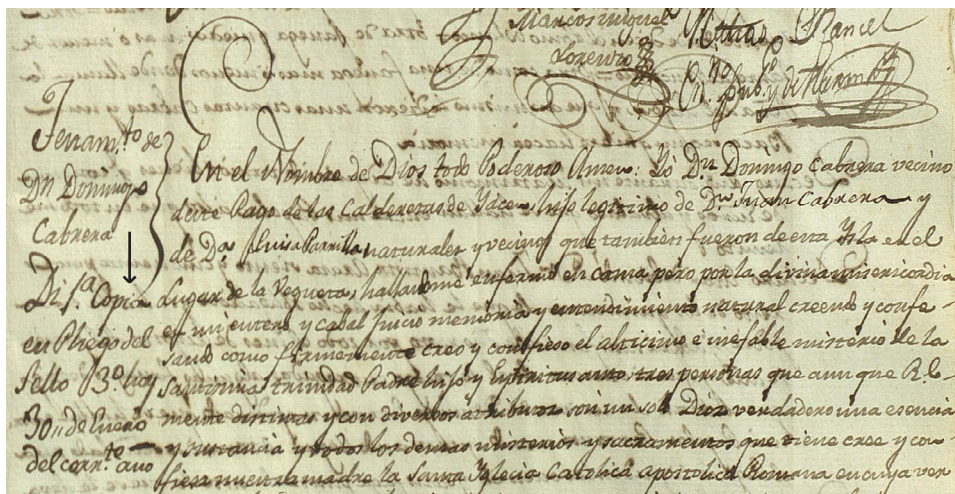 Marcos miguel
Lorenzo
Mathias Rancel
p.no
En. pub.o y de Hazam.to
Textam.to de
Dn Domingo
Cabrera
Di 1.a Copia
en Pliego del
sello 3.o hoy
30,, de Enero
del corr.te año
En el Nombre de Dios todo Poderoso Amen: Yó Dn. Domingo Cabrera vecino
de este Pago de las Caldereras de Yace hijo legitimo de Dn. Juan Cabrera y
de D.a Luisa Parrilla naturales y vecinos que tambien fueron de esta Ysla en el
Lugar de la Vegueta, hallandome enfermo en cama pero por la divina misericordia
en mi entero y cabal Juicio memoria y entendimiento natural creendo y confe-
sando como firmemente creo y confieso el alticimo é inefable misterio de la
Santicima trinidad Padre hijo y Espiritusanto, tres personas que aun que Rl.e-
mente distintas y con diversos atributos son un solo Dios verdadero una esencia
y sustancia y todos los demas misterios y sacramentos que tiene cree y con-
fiesa nuestra madre la Santa Yglecia Catolica apostolica Romana en cuya ver